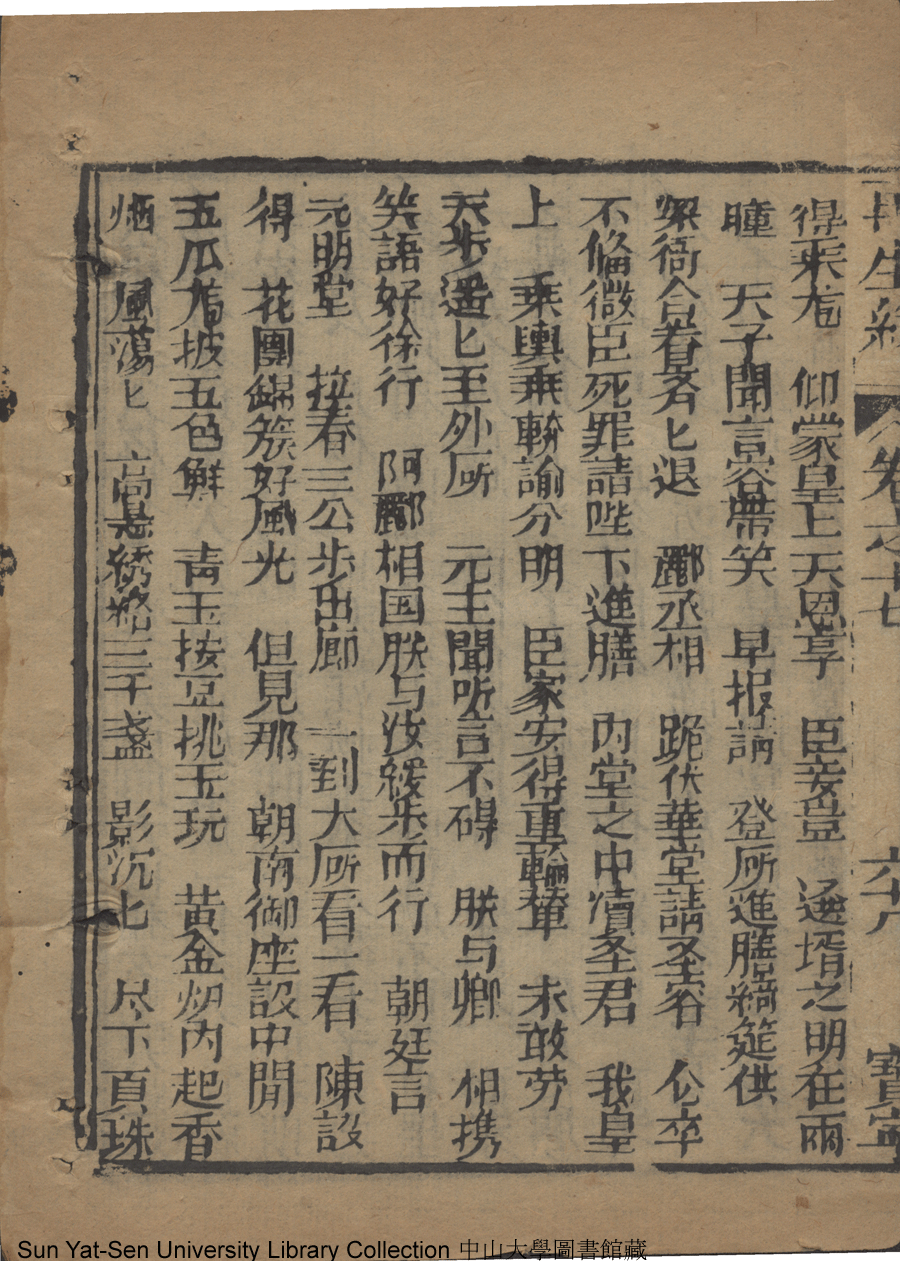 再生緣 卷之十七 六十八 寶寧
得乘 仰蒙皇上天恩享 臣妾豈 選壻之明在兩
瞳 天子聞言容帶笑 早报請 登厛進膳綺筵供
衆衙合眷各匕退 酈丞相 跪伏華堂請圣容 仓卒
不偹微臣死罪請陛下進膳 內堂之中凟圣君 我皇
上 乘輿乘輪諭分明 臣家安得重輪輦 未敢劳
天步遥匕至外厛 元主聞听言不碍 朕与卿 相携
笑語好徐行 阿酈相国朕与汝緩步而行 朝廷言
元明堂 挂春三公步出廊 一到大厛看一看 陳設
得 花團錦簇好風光 但見那 朝南御座設中間
五爪 披五色鮮 青玉按豆挑五玩 黃金炉內起香
烟 風蕩匕 高悬綉 三千盞 影沉匕 尽下真珠
Sun Yat-Sen University Library Collection 中山大學圖書館藏